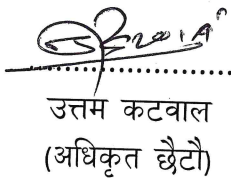 उत्तम कटवाल
(अधिकृत छैटौ)